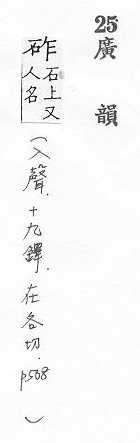 25廣韻
砟石上又人名
(入聲.十九鐸.在各切.p508)